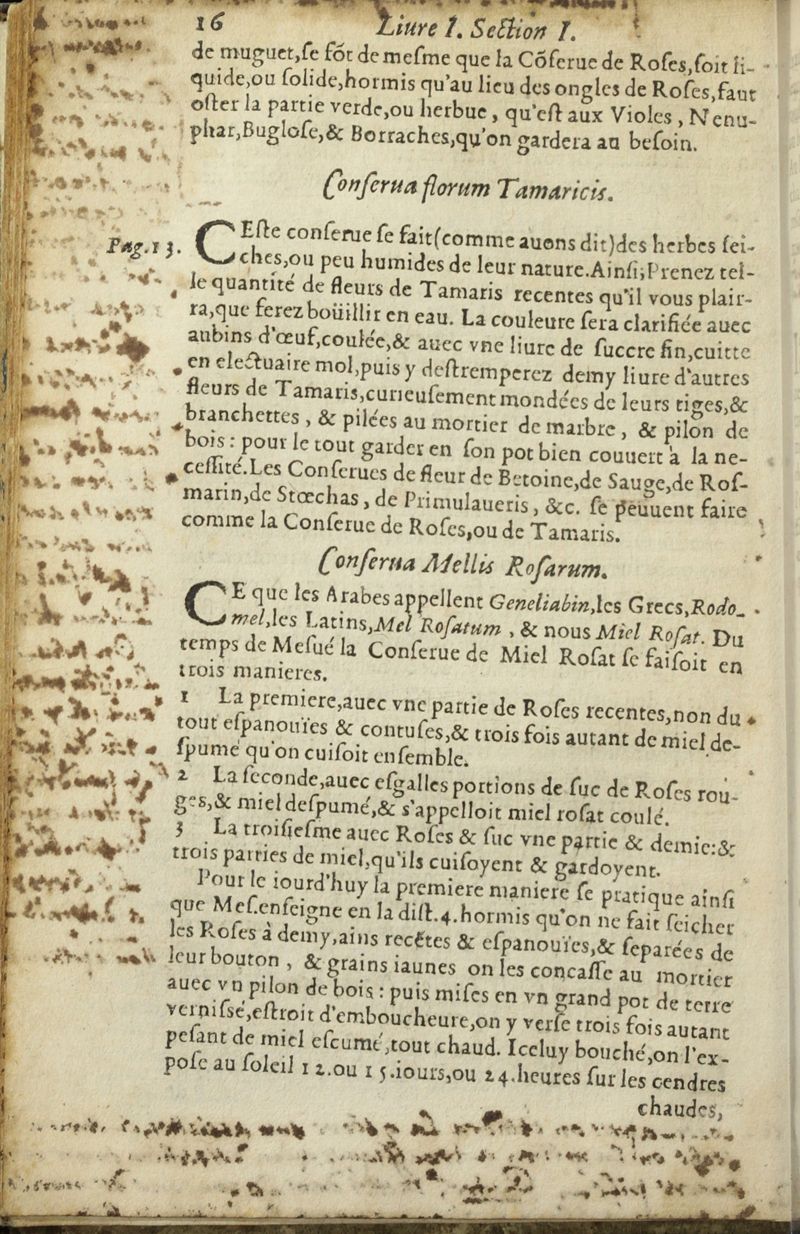 16 Liure I. Section I.
de muguet,se fõt de mesme que la Cõserue de Roses,soit li-
quide,ou solide,hormis qu'au lieu des ongles de Roses,faut
oster la partie verde,ou herbue, qu'est aux Violes, Nenu-
phar,Buglose,& Borraches,qu'on gardera au besoin.
Conserua florum Tamaricis.
Pag.13. CEste conserue se fait(comme auons dit)des herbes sei-
ches,ou peu humides de leur nature.Ainsi;Prenez tel-
le quantité de fleurs de Tamaris recentes qu'il vous plair-
ra,que ferez bouillir en eau. La couleure sera clarifiée auec
aubins d'œuf,coulée,& auec vne liure de succre fin,cuitte
en electuaire mol,puis y destremperez demy liure d'autres
fleurs de Tamaris,curieusement mondées de leurs tiges,&
branchettes, & pilées au mortier de marbre, & pilon de
bois: pour le tout garder en son pot bien couuert à la ne-
cessité.Les Conserues de fleur de Betoine,de Sauge,de Ros-
marin,de Stœchas, de Primulaueris, &c. se peuuent faire
comme la Conserue de Roses,ou de Tamaris.
Conserua Mellis Rosarum.
CE que les Arabes appellent Geneliabin,les Grecs,Rodo-
mel,les Latins,Mel Rosatum, & nous Miel Rosat. Du
temps de Mesué la Conserue de Miel Rosat se faisoit en
trois manieres.
1 La premiere,auec vne partie de Roses recentes,non du
tout espanouïes & contuses,& trois fois autant de miel de-
spumé qu'on cuisoit ensemble.
2 La seconde,auec esgalles portions de suc de Roses rou-
ges,& miel despumé,& s'appelloit miel rosat coulé.
3 La troisiesme auec Roses & suc vne partie & demie:&
trois parties de miel,qu'ils cuisoyent & gardoyent.
Pour le iourd'huy la premiere maniere se pratique ainsi
que Mes.enseigne en la dist.4.hormis qu'on ne fait seicher
les Roses à demy,ains recẽtes & espanouïes,& separées de
leur bouton, & grains iaunes on les concasse au mortier
auec vn pilon de bois: puis mises en vn grand pot de terre
vernissé,estroit d'emboucheure,on y verse trois fois autant
pesant de miel escumé,tout chaud. Iceluy bouché,on l'ex-
pose au soleil 12.ou 15.iours,ou 24.heures sur les cendres
chaudes,